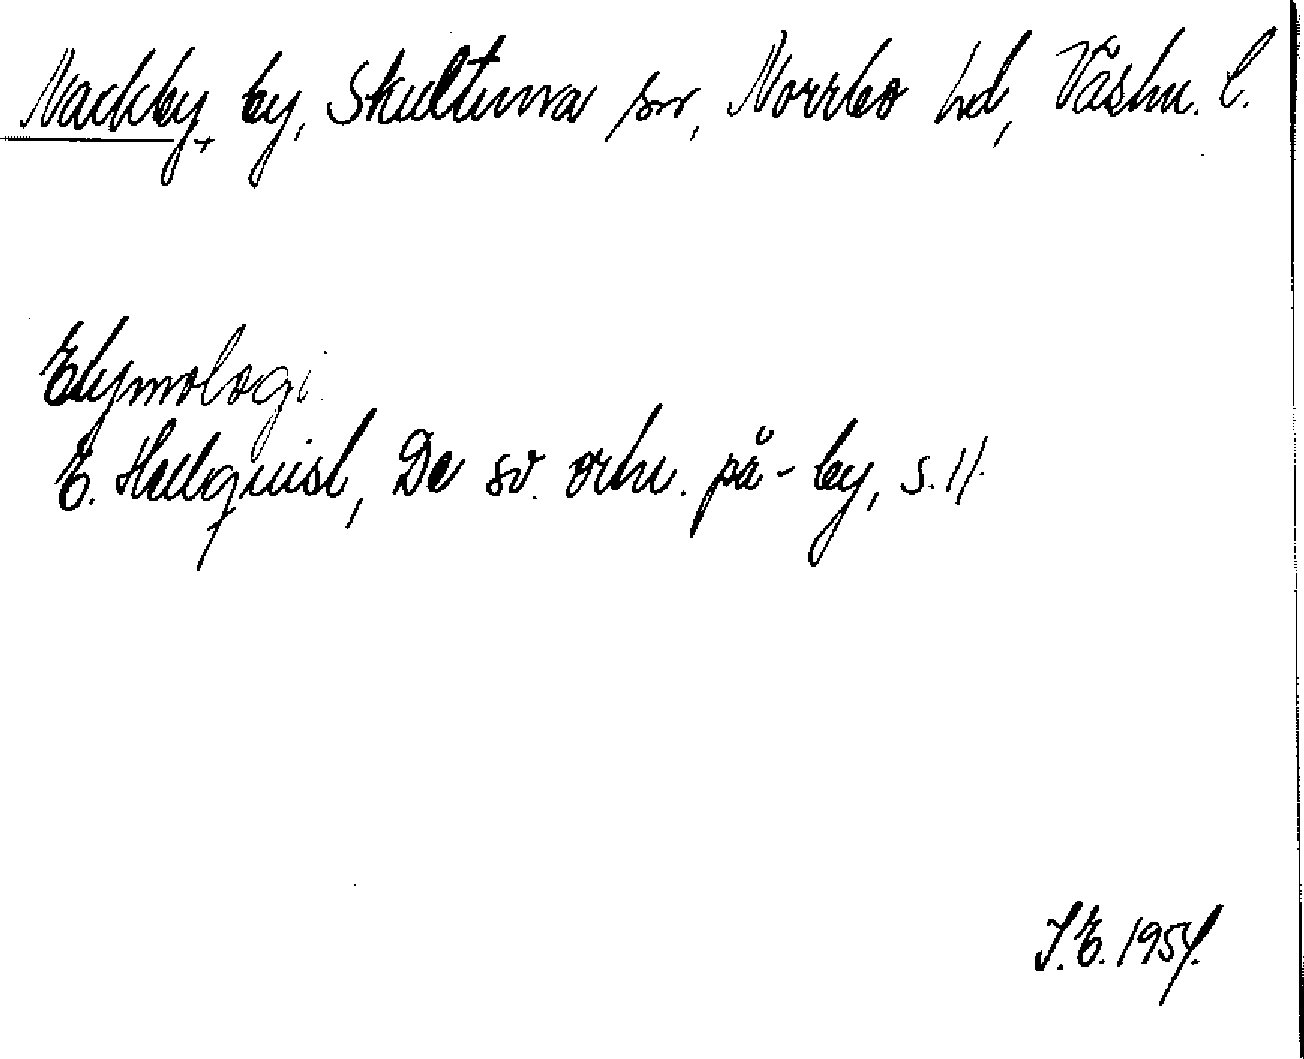 Nackby, by, Skultuna sn, Norrbo hd, Västm. l.
Etymologi
E. Hellquist, De sv. ortn. på -by, s. 11.
J.E. 1954.